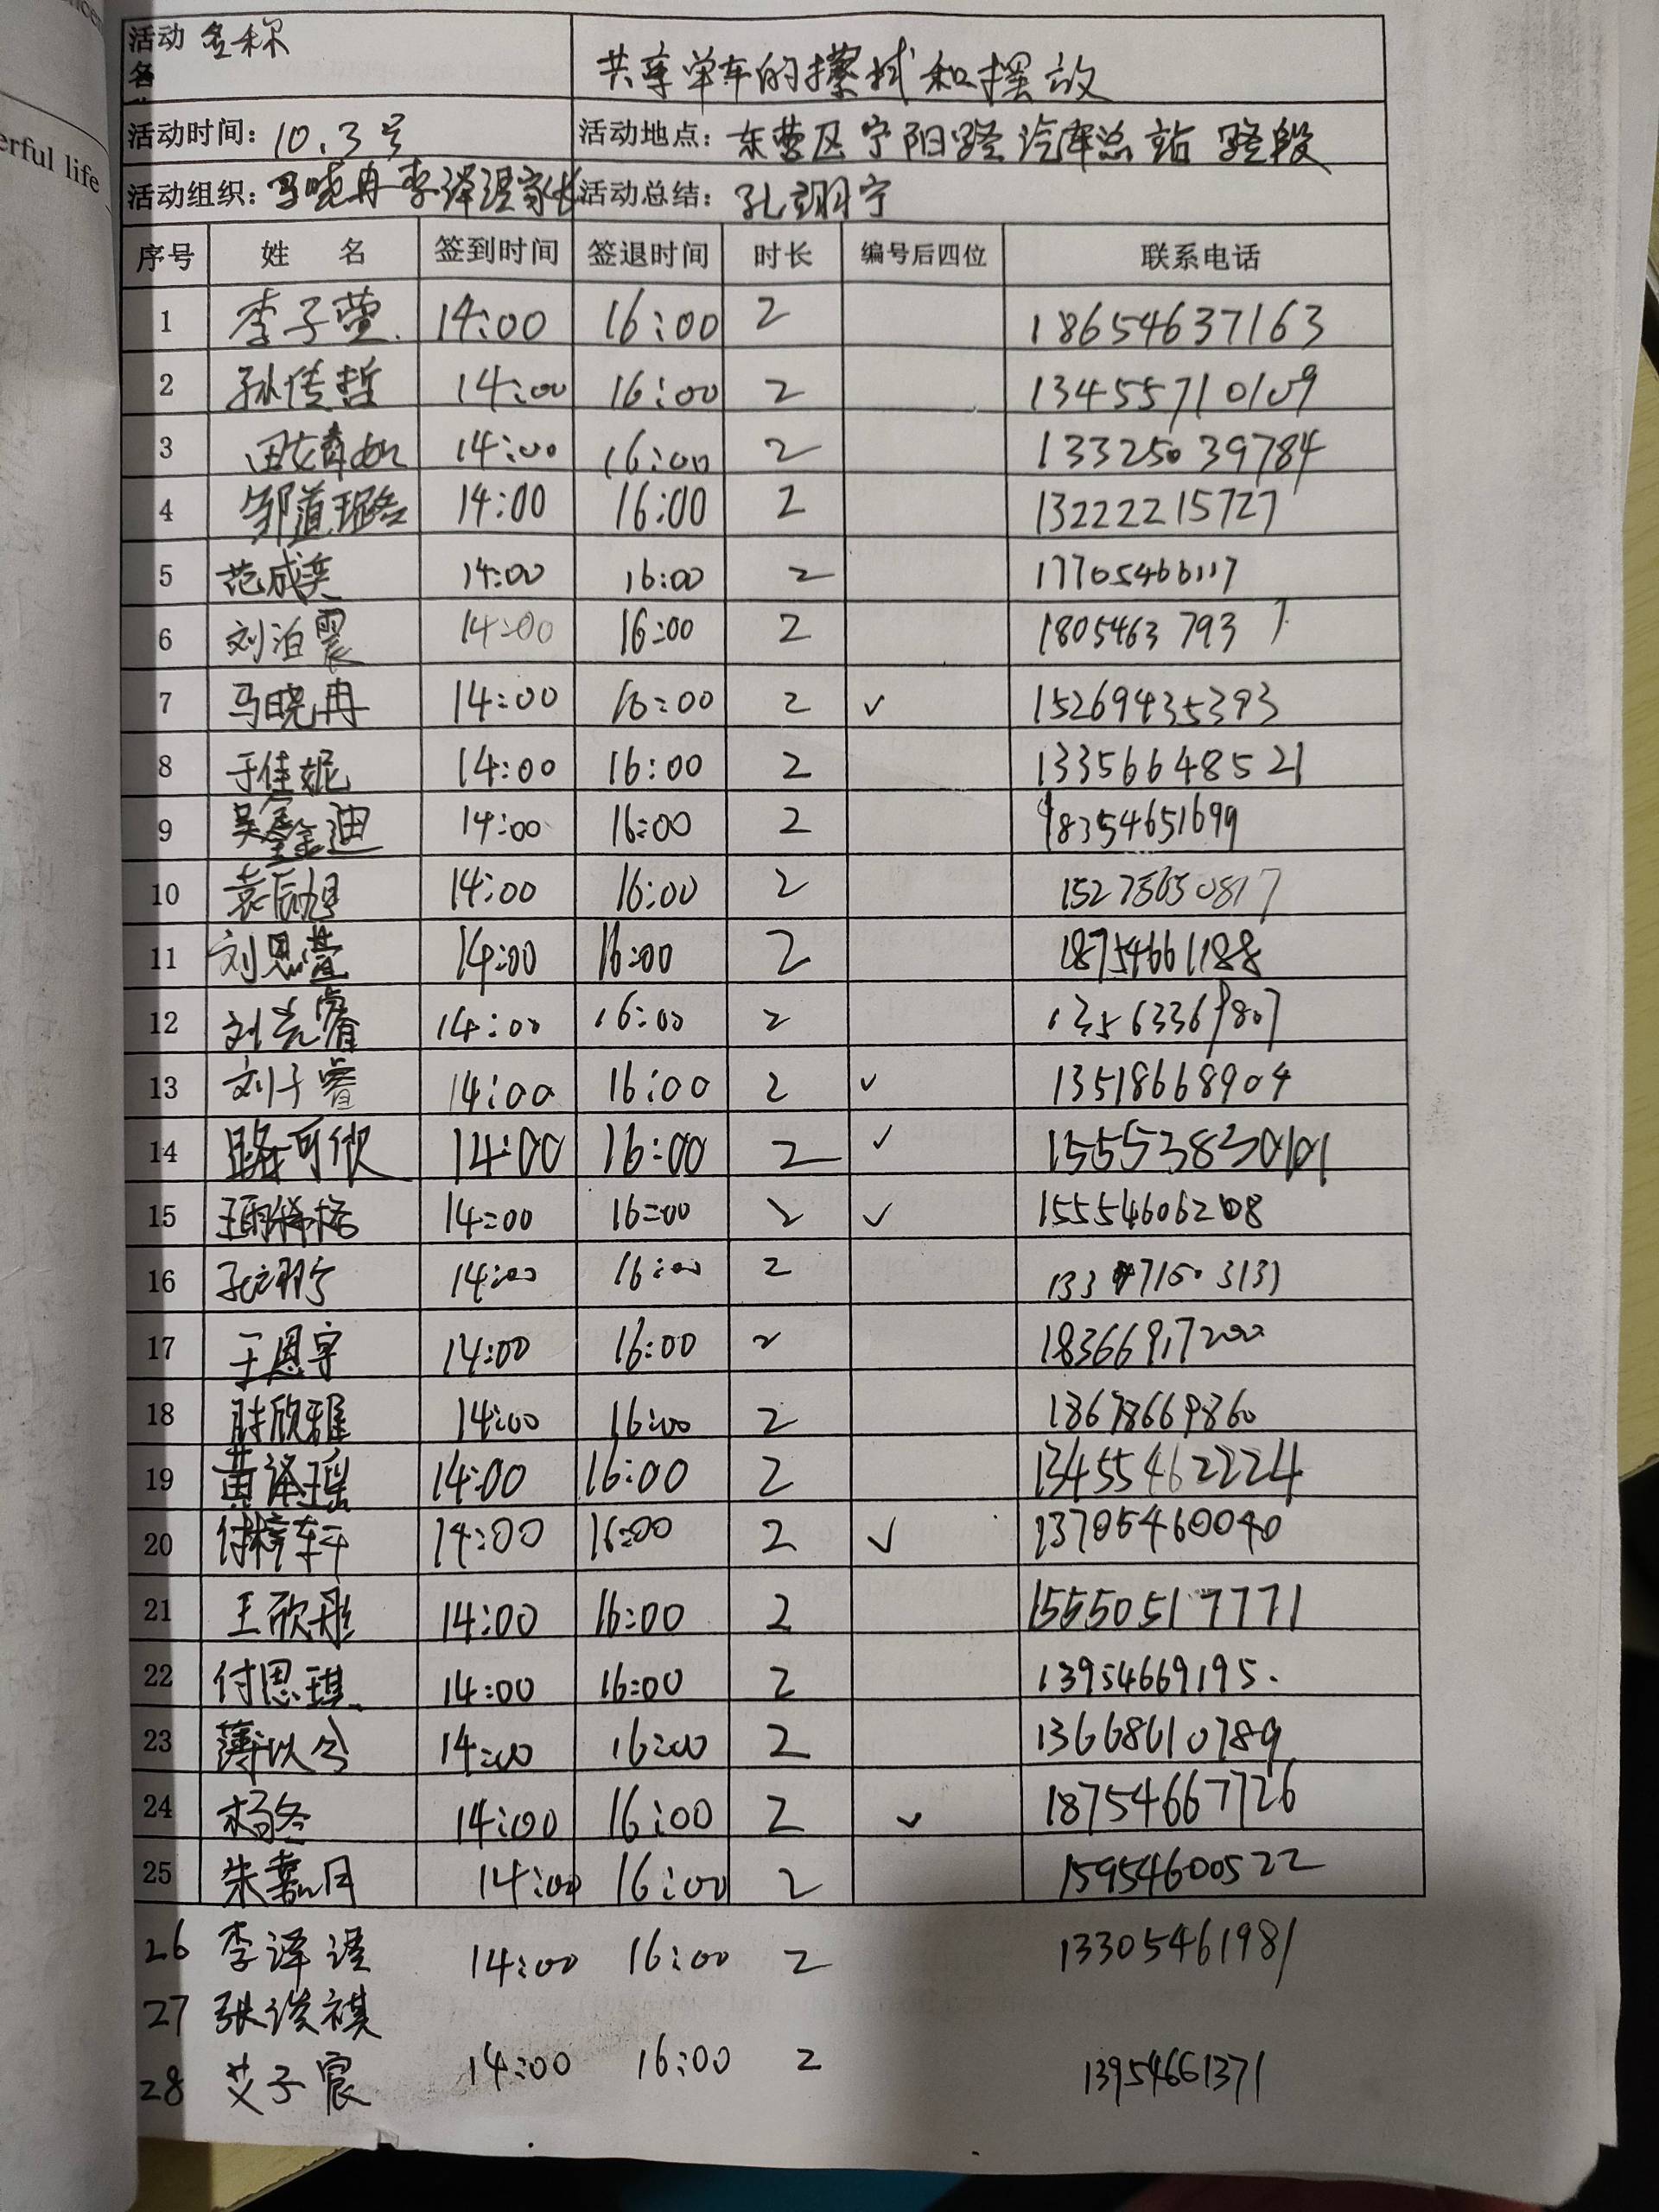 erful life
活动 名称
名
共享单车的擦拭和摆放
活动时间: 10.3号 活动地点: 东营区宁阳路汽车总站路段
活动组织: 马晓冉李泽瑆家长 活动总结: 孔翊宁
序号 姓 名 签到时间 签退时间 时长 编号后四位 联系电话
1 李子萱. 14:00 16:00 2 18654637163
2 孙传哲 14:00 16:00 2 13455710109
3 14:00 16:00 2 13325039784
4 邹道璐 14:00 16:00 2 13222215727
5 范成奕 14:00 16:00 2 17705466117
6 刘泊震 14:00 16:00 2 1805463793
7 马晓冉 14:00 16:00 2 ✓ 15269435393
8 于佳妮 14:00 16:00 2 13356648521
9 吴鑫迪 14:00 16:00 2 18354651699
10 袁辰旭 14:00 16:00 2
11 刘恩萱 14:00 16:00 2 18754661188
12 刘光睿 14:00 16:00 2 13563369807
13 刘子睿 14:00 16:00 2 ✓ 13518668904
14 路可欣 14:00 16:00 2 ✓ 15553830101
15 14:00 16:00 2 ✓ 15554606208
16 孔翊宁 14:00 16:00 2
17 于恩宇 14:00 16:00 2 18366917200
18 14:00 16:00 2 18678669860
19 黄泽瑶 14:00 16:00 2 13455462224
20 付梓轩 14:00 16:00 2 ✓ 13705460040
21 王欣彤 14:00 16:00 2 15550517771
22 付思琪. 14:00 16:00 2 13954669195.
23 薄以兮 14:00 16:00 2 13668610789
24 杨冬 14:00 16:00 2 ✓ 18754667726
25 朱嘉月 14:00 16:00 2 15954600522
26 李泽瑆 14:00 16:00 2 13305461981
27 张淡祺
28 艾子宸 14:00 16:00 2 13954661371